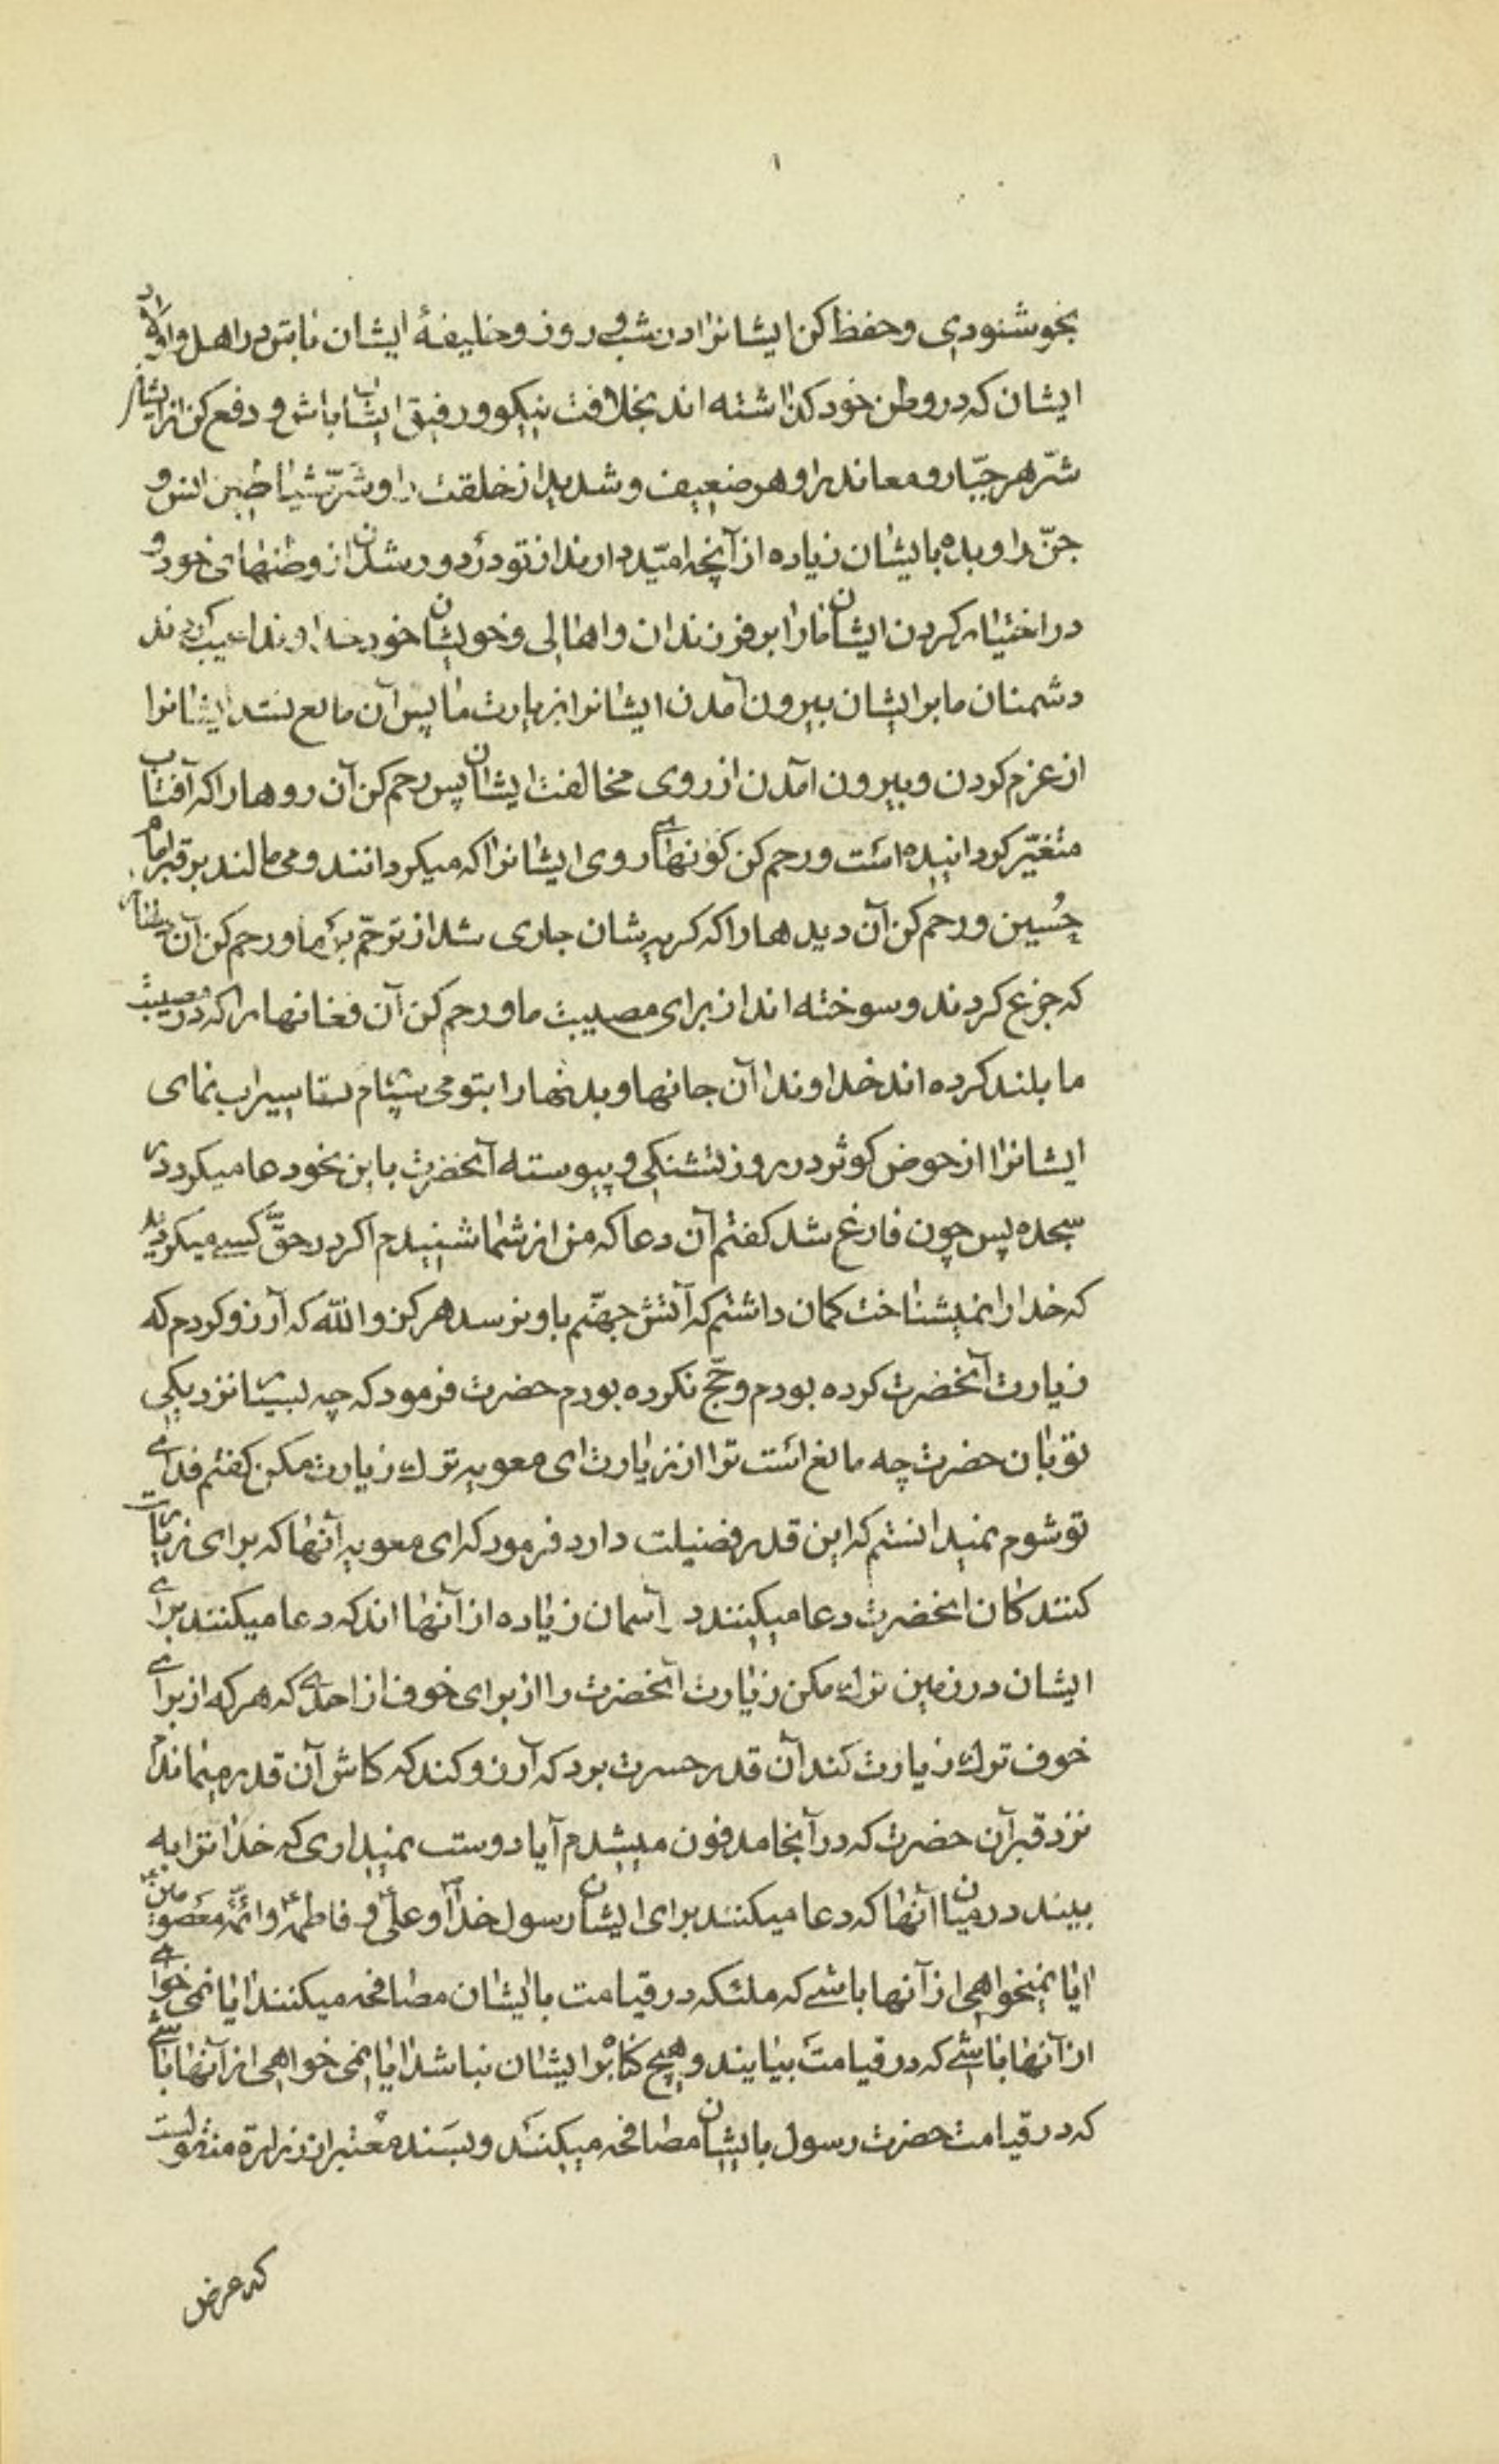 ۱
بخوشنودی و حفظ کن ایشانرا در شب و روز و خلیفهٔ ایشان باش در اهل و اولاد
ایشان که در وطن خود کذاشته اند بخلافت نیکو و رفیق ایشان باش و دفع کن از ایشان
شرّ هر جبّار و معاند را و هر ضعیف و شدید از خلقت را و شرّ شیاطین انس و
جنّ را و بده بایشان زیاده از آنچه امّید دارند از تو در دور شدن از وطنهای خود و
در اختیار کردن ایشان مارا بر فرزندان و اهالی و خویشان خود خداوندا عیب کردند
دشمنان ما بر ایشان بیرون آمدن ایشانرا بزیارت ما پس آن مانع نشد ایشانرا
از عزم کردن و بیرون آمدن از روی مخالفت ایشان پس رحم کن آن روها را که آفتاب
متغیّر کردانیده است و رحم کن کونهای روی ایشانرا که میکردانند و می مالند بر قبر امام
حُسین و رحم کن آن دیدها را که کریه شان جاری شد از ترحّم بر ما و رحم کن آن دلها
که جزع کردند و سوخته اند از برای مصیبت ما و رحم کن آن فغانها را که در مصیبت
ما بلند کرده اند خداوندا آن جانها و بدنها را بتو می سپارم تا سیراب نمای
ایشانرا از حوض کوثر در روز تشنکی و پیوسته آنحضرت باین نحو دعا میکرد در
سجده پس چون فارغ شد کفتم آن دعا که من از شما شنیدم اکر در حقّ کسی میکردید
که خدا را نمیشناخت کمان داشتم که آتش جهنّم باو نرسد هرکز و الله که آرزو کردم که
زیارت آنحضرت کرده بودم و حجّ نکرده بودم حضرت فرمود که چه بسیار نزدیکی
تو بان حضرت چه مانع است ترا از زیارت ای معویه ترک زیارت مکن کفتم فدای
تو شوم نمیدانستم که این قدر فضیلت دارد فرمود که ای معویه آنها که برای زیارت
کنندکان انحضرت دعا میکنند در آسمان زیاده از آنها اند که دعا میکنند برای
ایشان در زمین ترک مکن زیارت آنحضرت را از برای خوف از احدی که هر که از برای
خوف ترک زیارت کند آن قدر حسرت برد که آرزو کند که کاش آن قدر میماندم
نزد قبر آن حضرت که در آنجا مدفون میشدم آیا دوست نمیداری که خدا ترا به
بیند در میان آنها که دعا میکنند برای ایشان رسول خدا و علی و فاطمه و ائمّهٔ معصومین
ایا نمیخواهی از آنها باشی که ملئکه در قیامت با ایشان مصافحه میکنند ایا نمی خواهی
از آنها باشی که در قیامت بیایند و هیچ کناه بر ایشان نباشد ایا نمی خواهی از آنها باشی
که در قیامت حضرت رسول با ایشان مصافحه میکنند و بسَند معتبر از زراره منقولست
که عرض